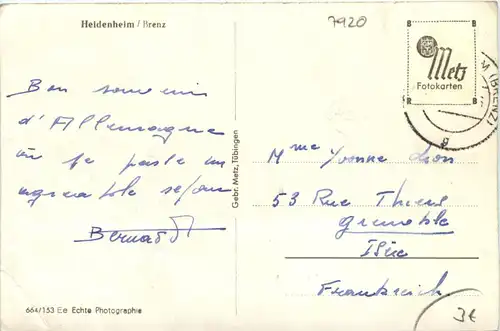 Heidenheim / Brenz
7920
B B
Metz
Fotokarten
R B
M (BRENZ)
g
Bon souvenir
d'Allemagne
où je passe un
agréable séjour
Bernadett
Gebr. Metz, Tübingen
Mme Yvonne Lion
53 Rue Thiers
Grenoble
Isère
Frankreich
664/153 Ee Echte Photographie
3€